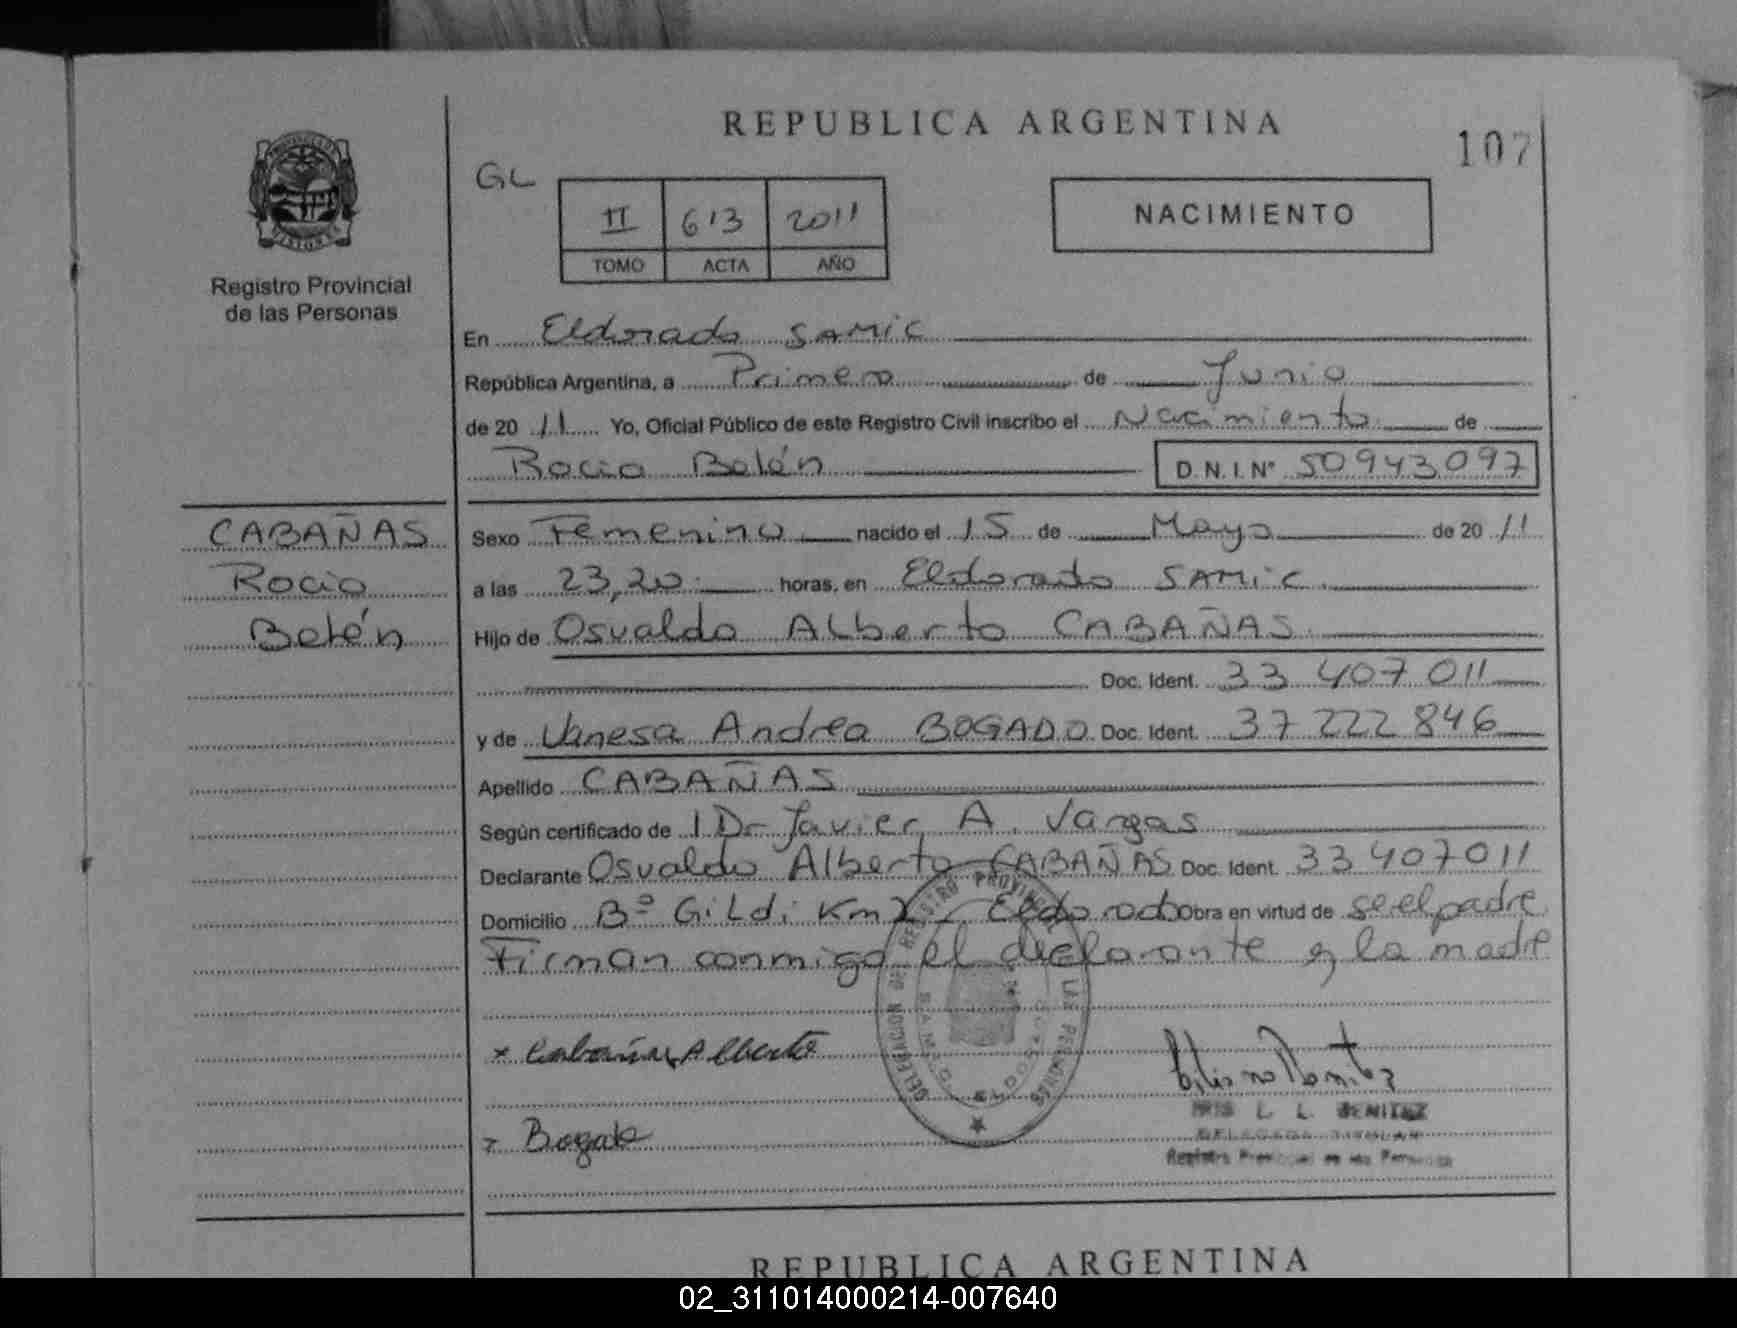 REPUBLICA ARGENTINA
107
GL
II 613 2011
TOMO ACTA AÑO
NACIMIENTO
Registro Provincial
de las Personas
En Eldorado SAMIC
República Argentina, a Primero de Junio
de 20 11 Yo, Oficial Público de este Registro Civil inscribo el Nacimiento de
Rocio Belén D.N.I.Nº 50943097
CABAÑAS
Rocio
Belén
Sexo Femenino nacido el 15 de Mayo de 20 11
a las 23,20 horas, en Eldorado SAMIC
Hijo de Osvaldo Alberto CABAÑAS
Doc. Ident. 33 407 011
y de Vanesa Andrea BOGADO Doc. Ident. 37 222 846
Apellido CABAÑAS
Según certificado de Dr Javier A. Vargas
Declarante Osvaldo Alberto CABAÑAS Doc. Ident. 33 407 011
Domicilio Bº Gildi Km Eldorado Obra en virtud de se el padre
Firman conmigo el declarante y la madre
Cabañas Alberto
Bogado
REGISTRO PROVINCIAL DE LAS PERSONAS
IRIS L. L. BENITEZ
DELEGADA TITULAR
Registro Provincial de las Personas
REPUBLICA ARGENTINA
02_311014000214-007640